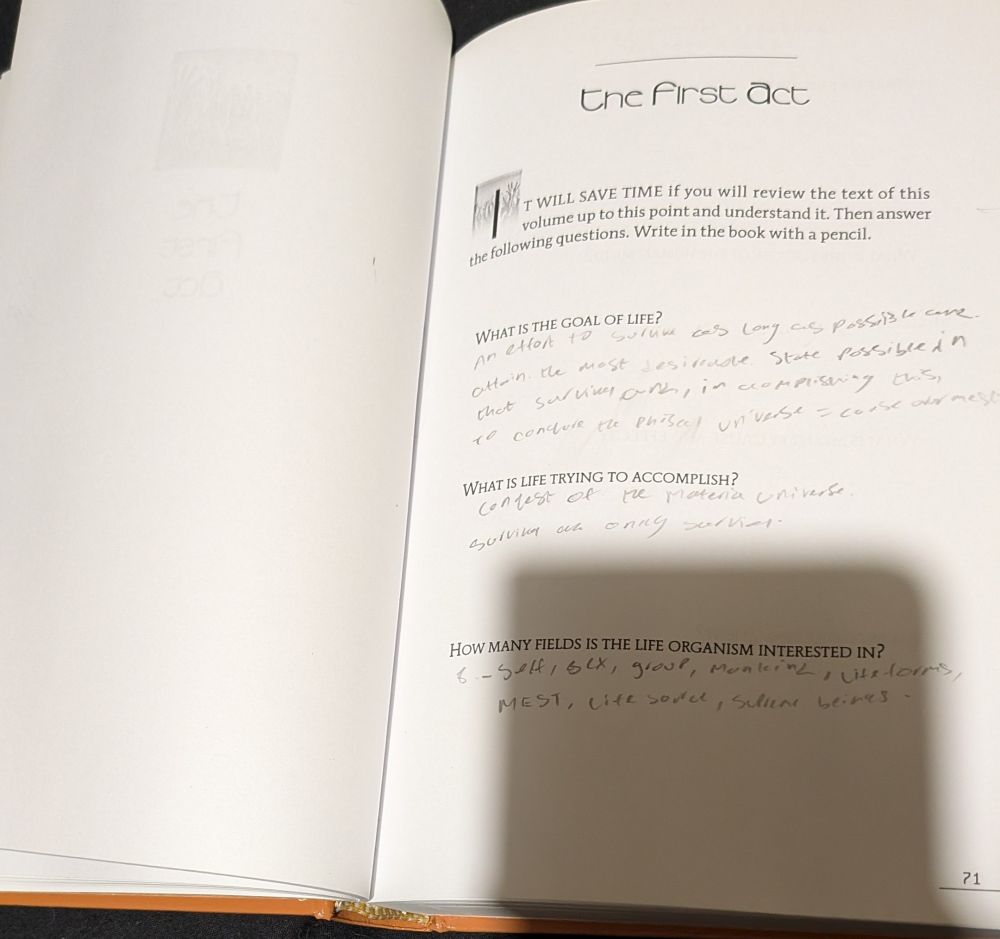 the first act
IT WILL SAVE TIME if you will review the text of this
volume up to this point and understand it. Then answer
the following questions. Write in the book with a pencil.
WHAT IS THE GOAL OF LIFE?
An effort to survive as long as possible
attain the most desireable state possible in
that in this,
to the universe = cause over mest
WHAT IS LIFE TRYING TO ACCOMPLISH?
of the materia universe.
HOW MANY FIELDS IS THE LIFE ORGANISM INTERESTED IN?
8 - self, sex, group, mankind, life forms,
MEST, life source, beings.
71